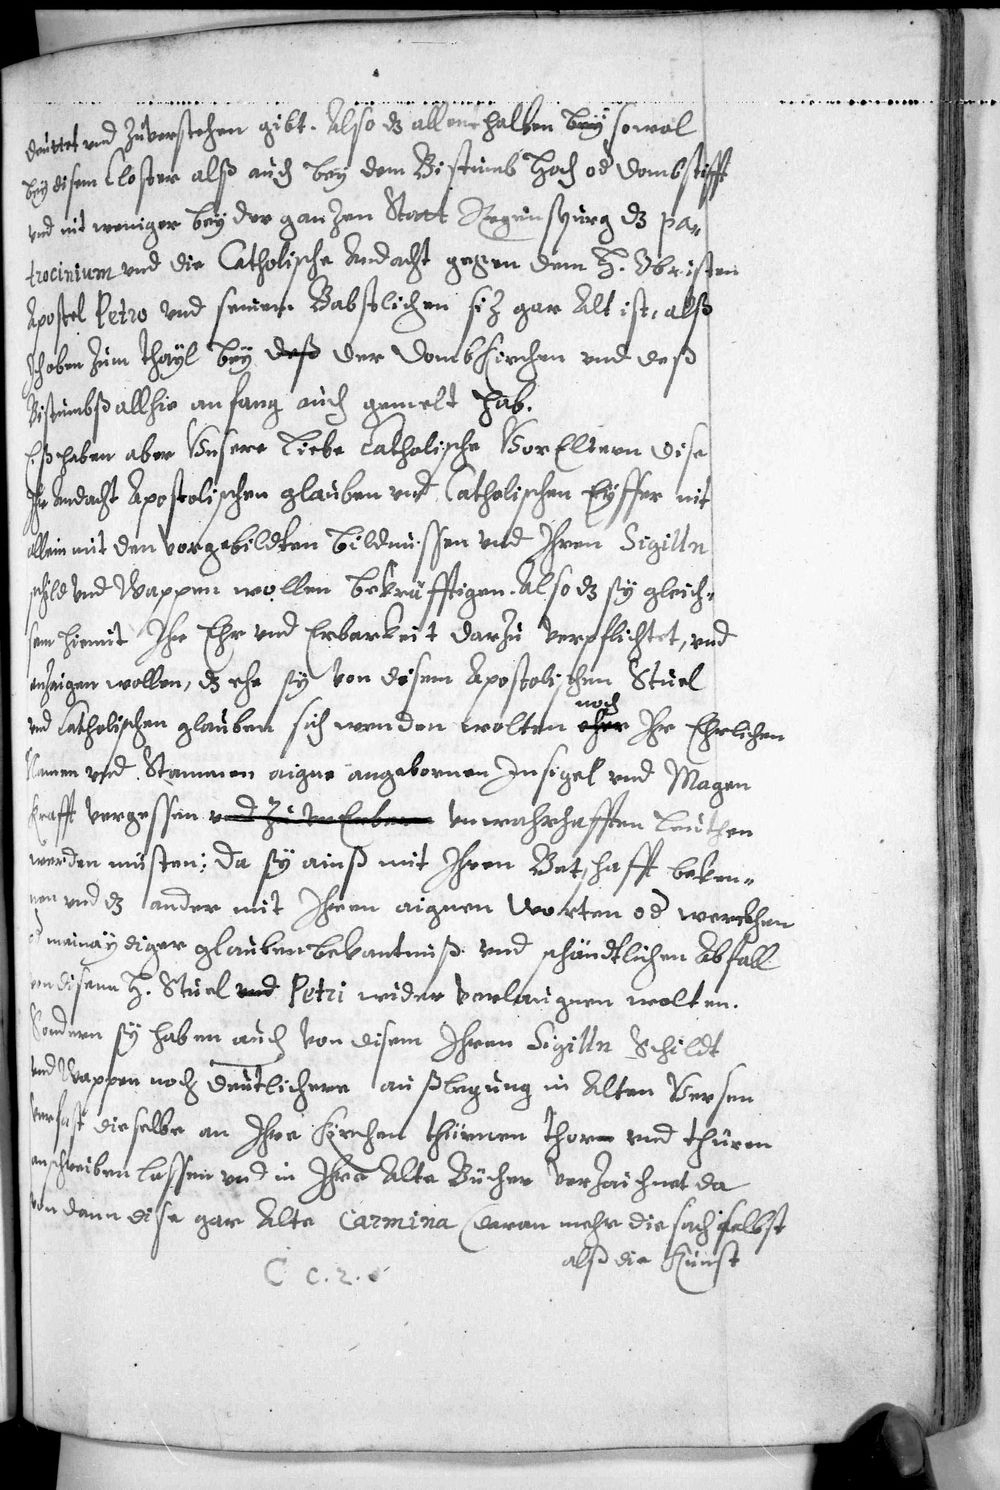 deuttet und zuverstehen gibt. Also dz allenthalben bey sowol
bey disem Closter alß auch bey dem Bistumb Hoch od Dombstifft
und nit weniger bey der ganzen Statt Regenspurg dz pa-
trocinium und die Catholische Andacht gegen dem H. Obristen
Apostel Petro und seinem Babstlichen siz gar Alt ist, alß
Ich oben zum thayl bey deß der Dombkirchen und deß
Bistumbß allhie anfang auch gemelt hab.
Eß haben aber Unsere liebe Catholische VorEltern dise
Ihr Andacht Apostolischen glauben und Catholischen Eyffer nit
allein mit den vorgebildten bildnussen und Ihren Sigilln
schild und Wappen wollen bekräfftigen. Also dz sy gleich-
sam hiemit Ihr Ehr und Erbarkeit darzu verpflichtet, und
anzaigen wollen, dz ehe sy von disem Apostolischen Stuel
und Catholischen glauben sich wenden wolten eher noch Ihr Ehrlichen
Namen und Stammen aigne angebornen Insigel und Magen
Krafft vergessen und zu unErbarn unwahrhafften leuthen
werden müsten: Da sy ainß mit Ihren Betschafft beken-
nen und dz ander mit Ihren aignen Worten od werckhen
od mainaydiger glaubenbekantnuß und schändtlichen Abfall
von disem H. Stuel und Petri wider verlaugnen wolten.
Sondern sy haben auch von disem Ihren Sigilln Schildt
und Wappen noch deutlichere außlegung in Alten Versen
verfast dieselbe an Ihre Kirchen thürnen thore und thüren
anschreiben lassen und in Ihre Alte Bücher verzaichnet da
von dann dise gar Alte Carmina (daran mehr die sach selbst
alß die Kunst
C c. 2.